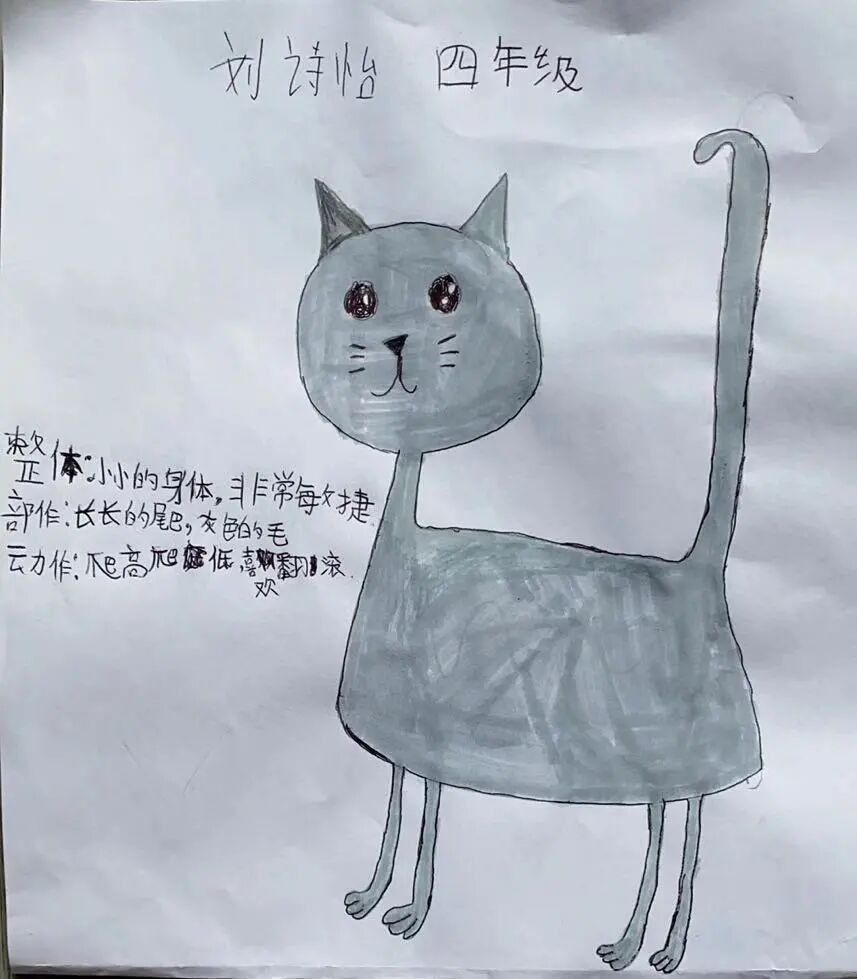 刘诗怡 四年级
整体:小小的身体,非常每文捷.
部作:长长的尾巴,灰色的毛
云力作:爬高爬低,喜欢翻滚.